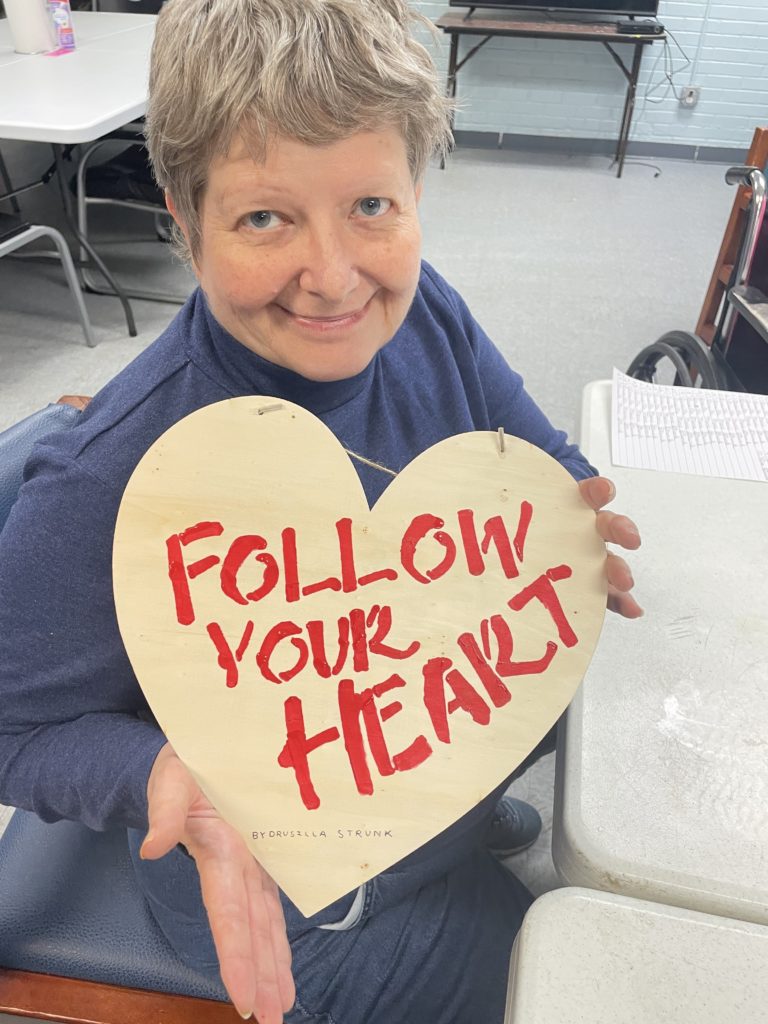 FOLLOW
YOUR
HEART
BY DRUSILLA STRUNK